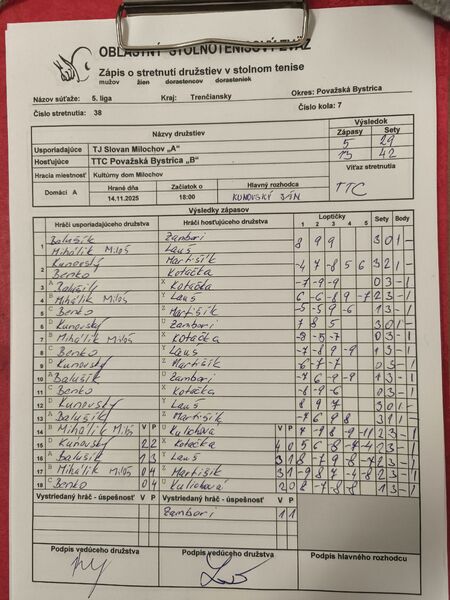 OBLASTNÝ STOLNOTENISOVÝ ZVÄZ
Zápis o stretnutí družstiev v stolnom tenise
mužov žien dorastencov dorasteniek
Názov súťaže: 5. liga Kraj: Trenčiansky Okres: Považská Bystrica
Číslo stretnutia: 38 Číslo kola: 7
Názvy družstiev Výsledok
Zápasy Sety
Usporiadajúce TJ Slovan Milochov „A" 5 29
Hosťujúce TTC Považská Bystrica „B" 13 42
Hracia miestnosť Kultúrny dom Milochov Víťaz stretnutia
Domáci A Hrané dňa Začiatok o Hlavný rozhodca TTC
14.11.2025 18:00 KUNOVSKÝ JÁN
Výsledky zápasov
Hráči usporiadajúceho družstva Hráči hosťujúceho družstva Loptičky Sety Body
1 2 3 4 5
1 Balušík Zambori 8 9 9 3 0 1 -
Mihálik Miloš Lauš
2 Kunovský Martišík -4 7 -8 5 6 3 2 1 -
Benko Kotačka
3 A Balušík X Kotačka -7 -9 -9 0 3 - 1
4 B Mihálik Miloš Y Lauš 2 3 - 1
5 C Benko Z Martišík -5 -5 9 -6 1 3 - 1
6 D Kunovský U Zambori 7 8 5 3 0 1 -
7 B Mihálik Miloš X Kotačka 0 3 - 1
8 C Benko Y Lauš -7 -8 9 -9 1 3 - 1
9 D Kunovský Z Martišík -6 -7 -7 0 3 - 1
10 A Balušík U Zambori 1 3 - 1
11 C Benko X Kotačka -8 -9 -6 0 3 - 1
12 D Kunovský Y Lauš 3 0 1 -
13 A Balušík Z Martišík -7 6 8 8 3 1 1
14 B Mihálik Miloš V P U Kulichová V P 2 3 - 1
15 D Kunovský 2 2 X Kotačka 4 0 2 3 - 1
16 A Balušík 1 3 Y Lauš 3 1 2 3 - 1
17 B Mihálik Miloš 0 4 Z Martišík 3 1 2 3 - 1
18 C Benko 0 4 U Kulichová 2 0 1 3 - 1
Vystriedaný hráč - úspešnosť V P Vystriedaný hráč - úspešnosť V P
Zambori 1 1
Podpis vedúceho družstva Podpis vedúceho družstva Podpis hlavného rozhodcu